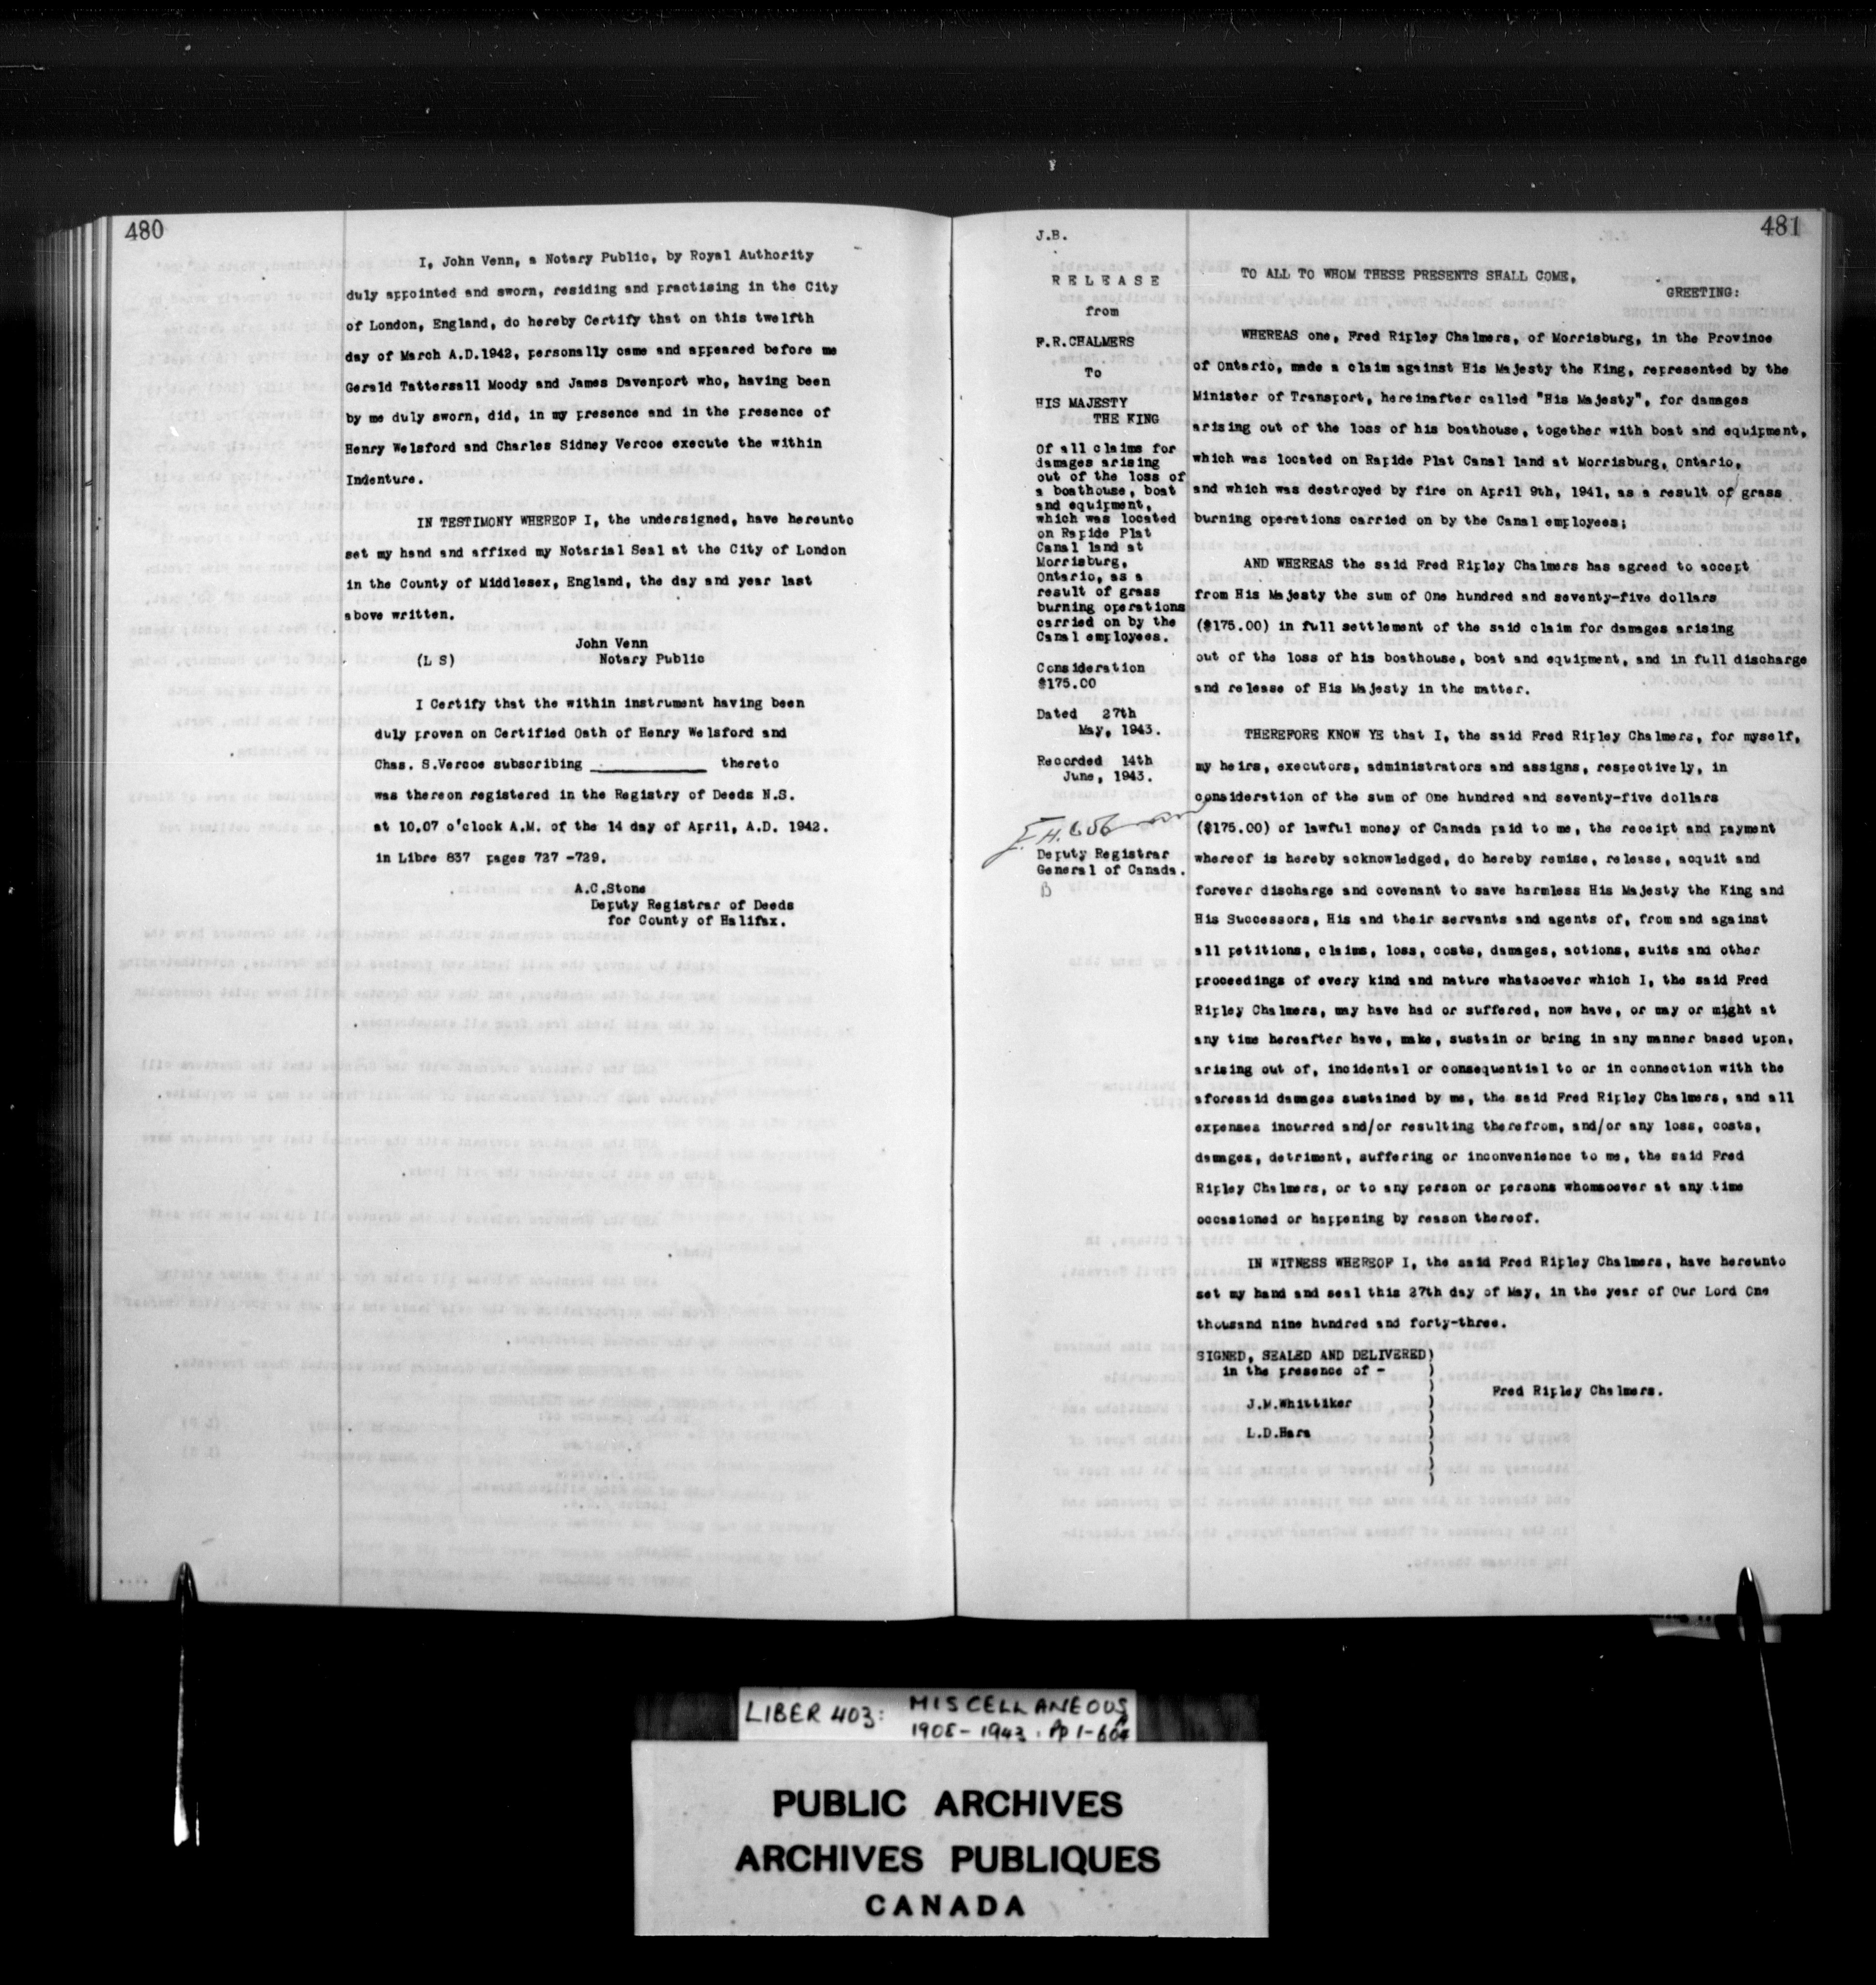 480
I, John Venn, a Notary Public, by Royal Authority
duly appointed and sworn, residing and practising in the City
of London, England, do hereby Certify that on this twelfth
day of March A.D.1942, personally came and appeared before me
Gerald Tattersall Moody and James Davenport who, having been
by me duly sworn, did, in my presence and in the presence of
Henry Welsford and Charles Sidney Vercoe execute the within
Indenture.
IN TESTIMONY WHEREOF I, the undersigned, have hereunto
set my hand and affixed my Notarial Seal at the City of London
in the County of Middlesex, England, the day and year last
above written.
John Venn
(L S) Notary Public
I Certify that the within instrument having been
duly proven on Certified Oath of Henry Welsford and
Chas. S.Vercoe subscribing ____________ thereto
was thereon registered in the Registry of Deeds N.S.
at 10.07 o'clock A.M. of the 14 day of April, A.D. 1942.
in Libre 837 pages 727 -729.
A.C.Stone
Deputy Registrar of Deeds
for County of Halifax.
481
J.B.
R E L E A S E
from
F.R.CHALMERS
To
HIS MAJESTY
THE KING
Of all claims for
damages arising
out of the loss of
a boathouse, boat
and equipment,
which was located
on Rapide Plat
Canal land at
Morrisburg,
Ontario, as a
result of grass
burning operations
carried on by the
Canal employees.
Consideration
$175.00
Dated 27th
May, 1943.
Recorded 14th
June, 1943.
Deputy Registrar
General of Canada.
B
TO ALL TO WHOM THESE PRESENTS SHALL COME,
GREETING:
WHEREAS one, Fred Ripley Chalmers, of Morrisburg, in the Province
of Ontario, made a claim against His Majesty the King, represented by the
Minister of Transport, hereinafter called "His Majesty", for damages
arising out of the loss of his boathouse, together with boat and equipment,
which was located on Rapide Plat Canal land at Morrisburg, Ontario,
and which was destroyed by fire on April 9th, 1941, as a result of grass
burning operations carried on by the Canal employees;
AND WHEREAS the said Fred Ripley Chalmers has agreed to accept
from His Majesty the sum of One hundred and seventy-five dollars
($175.00) in full settlement of the said claim for damages arising
out of the loss of his boathouse, boat and equipment, and in full discharge
and release of His Majesty in the matter.
THEREFORE KNOW YE that I, the said Fred Ripley Chalmers, for myself,
my heirs, executors, administrators and assigns, respectively, in
consideration of the sum of One hundred and seventy-five dollars
($175.00) of lawful money of Canada paid to me, the receipt and payment
whereof is hereby acknowledged, do hereby remise, release, acquit and
forever discharge and covenant to save harmless His Majesty the King and
His Successors, His and their servants and agents of, from and against
all petitions, claims, loss, costs, damages, actions, suits and other
proceedings of every kind and nature whatsoever which I, the said Fred
Ripley Chalmers, may have had or suffered, now have, or may or might at
any time hereafter have, make, sustain or bring in any manner based upon,
arising out of, incidental or consequential to or in connection with the
aforesaid damages sustained by me, the said Fred Ripley Chalmers, and all
expenses incurred and/or resulting therefrom, and/or any loss, costs,
damages, detriment, suffering or inconvenience to me, the said Fred
Ripley Chalmers, or to any person or persons whomsoever at any time
occasioned or happening by reason thereof.
IN WITNESS WHEREOF I, the said Fred Ripley Chalmers, have hereunto
set my hand and seal this 27th day of May, in the year of Our Lord One
thousand nine hundred and forty-three.
SIGNED, SEALED AND DELIVERED)
in the presence of -
Fred Ripley Chalmers.
J.M.Whittiker
L.D.Hara
LIBER 403: MISCELLANEOUS
1908 - 1943. Pp 1-604
PUBLIC ARCHIVES
ARCHIVES PUBLIQUES
CANADA